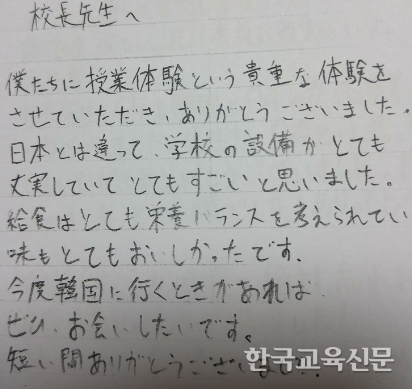 校長先生へ
僕たちに授業体験という貴重な体験を
させていただき、ありがとうございました。
日本とは違って、学校の設備がとても
充実していてとてもすごいと思いました。
給食はとても栄養バランスを考えられてい
味もとてもおいしかったです。
今度韓国に行くときがあれば
ぜひ、お会いしたいです。
短い間ありがとうござい
한국교육신문